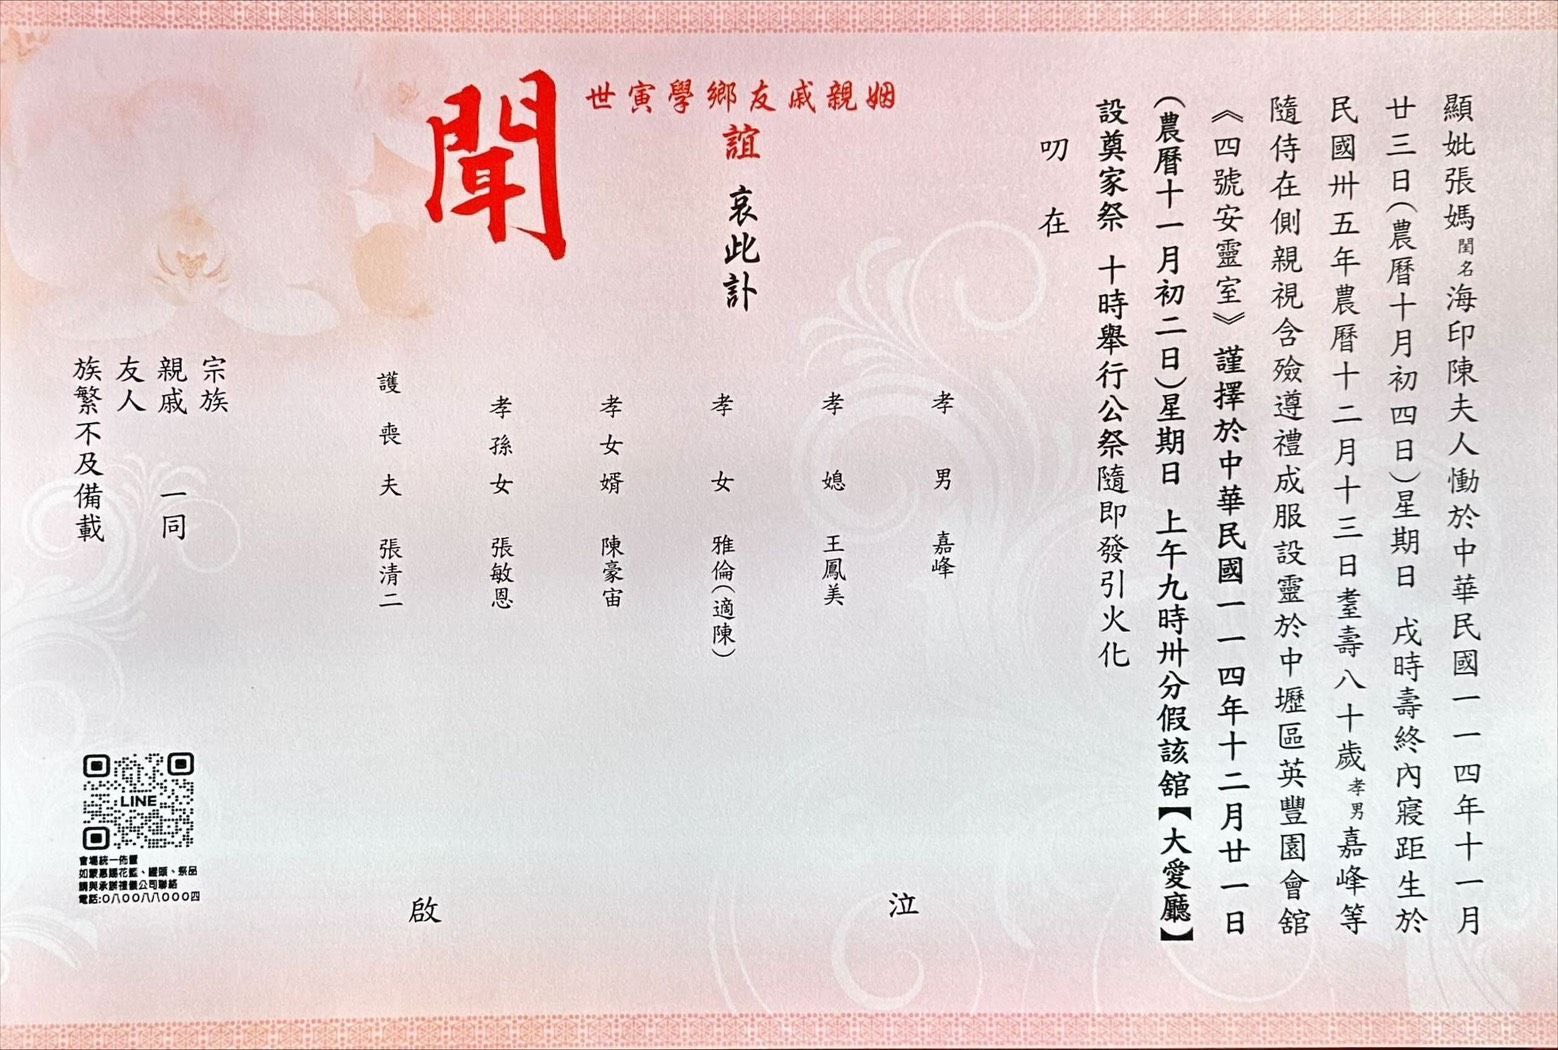 顯妣張媽閏名海印陳夫人慟於中華民國一一四年十一月
廿三日(農曆十月初四日)星期日 戌時壽終內寢距生於
民國卅五年農曆十二月十三日耋壽八十歲孝男嘉峰等
隨侍在側親視含殮遵禮成服設靈於中壢區英豐園會舘
《四號安靈室》謹擇於中華民國一一四年十二月廿一日
(農曆十一月初二日)星期日 上午九時卅分假該舘【大愛廳】
設奠家祭 十時舉行公祭隨即發引火化
叨在
姻親戚友鄉學寅世
誼 哀此訃
聞
孝男 嘉峰
孝媳 王鳳美
孝女 雅倫(適陳)
孝女婿 陳豪宙
孝孫女 張敏恩
護喪夫 張清二
泣
啟
宗族
親戚 一同
友人
族繁不及備載
LINE
會場統一佈置
如蒙惠賜花籃、罐頭、祭品
請與承辦禮儀公司聯絡
電話:０八００八八０００四